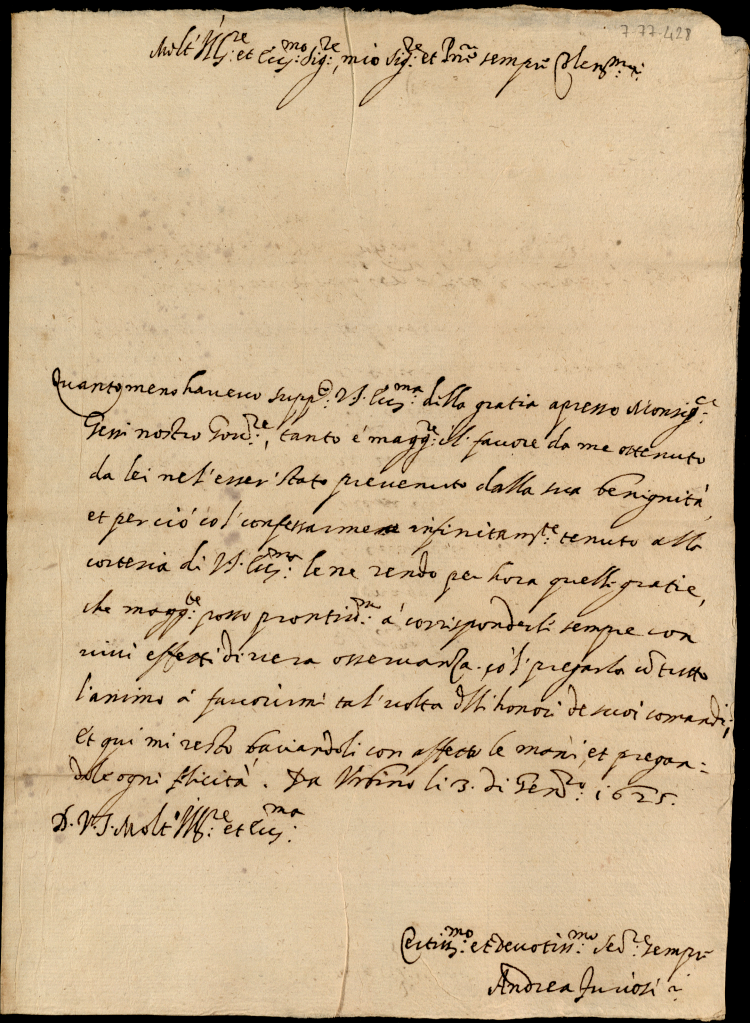 7-77-428
Molt' Ill.re et Ecc.mo Sig.re, mio Sig.re et Pnē sempr̄ Col.mo
Quanto meno havevo supp.to V.S. Ecc.ma della gratia apresso Monsig.re
Gessi nostro Gov.re, tanto é magg.re il favore da me ottenuto
da lei nel'esser' stato prevenuto dalla sua benignità,
et perció co'l confessarme infinitam.te tenuto alla
cortesia di V.S. Ecc.ma le ne rendo per hora quelle gratie,
che magg.re posso prontiss.mo á corrisponderli sempre con
vivi effetti di vera osservanza. co'l pregarla cō tutto
l'animo á favorirmi tal'volta dlli honori de suoi comandi;
Et qui mi resto baciandoli con affetto le mani, et pregan=
dole ogni felicitá. Da Urbino li 3. di Gen.ro 1625.
D. V. S. Molt' Ill.re et Ecc.ma
et Devotiss.mo Se.r sempr̄
Andrea